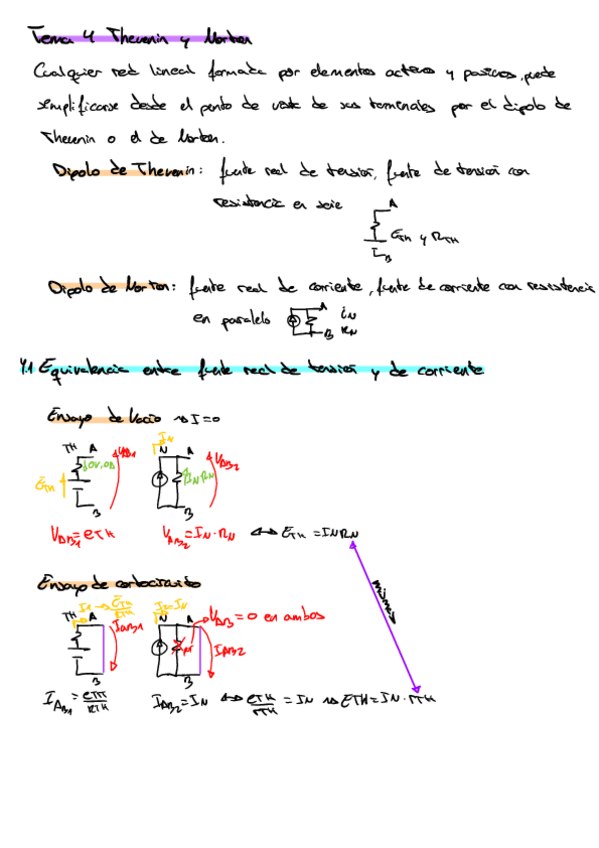 Tema 4 Thevenin y Norton
Cualquier red lineal formada por elementos activos y pasivos, puede
simplificarse desde el punto de vista de sus terminales por el dipolo de
Thevenin o el de Norton.
Dipolo de Thevenin: fuente real de tensión, fuente de tensión con
resistencia en serie
A
ETH y RTH
B
Dipolo de Norton: fuente real de corriente, fuente de corriente con resistencia
en paralelo
A
B
iN
RN
4.1 Equivalencia entre fuente real de tensión y de corriente
Ensayo de Vacío → I=0
TH A
ETH
VAB1
B
IN
N A
INRN
VAB2
B
VAB1=eTH
VAB2=IN·RN ↔ ETH = INRN
Ensayo de cortocircuito
I1 → ETH/RTH
TH A
IAB1
B
I2=IN
N A
VAB=0 en ambos
IAB2
B
mismos
IAB1 = eTH/RTH
IAB2=IN ↔ eTH/rTH = IN → ETH=IN·rTH